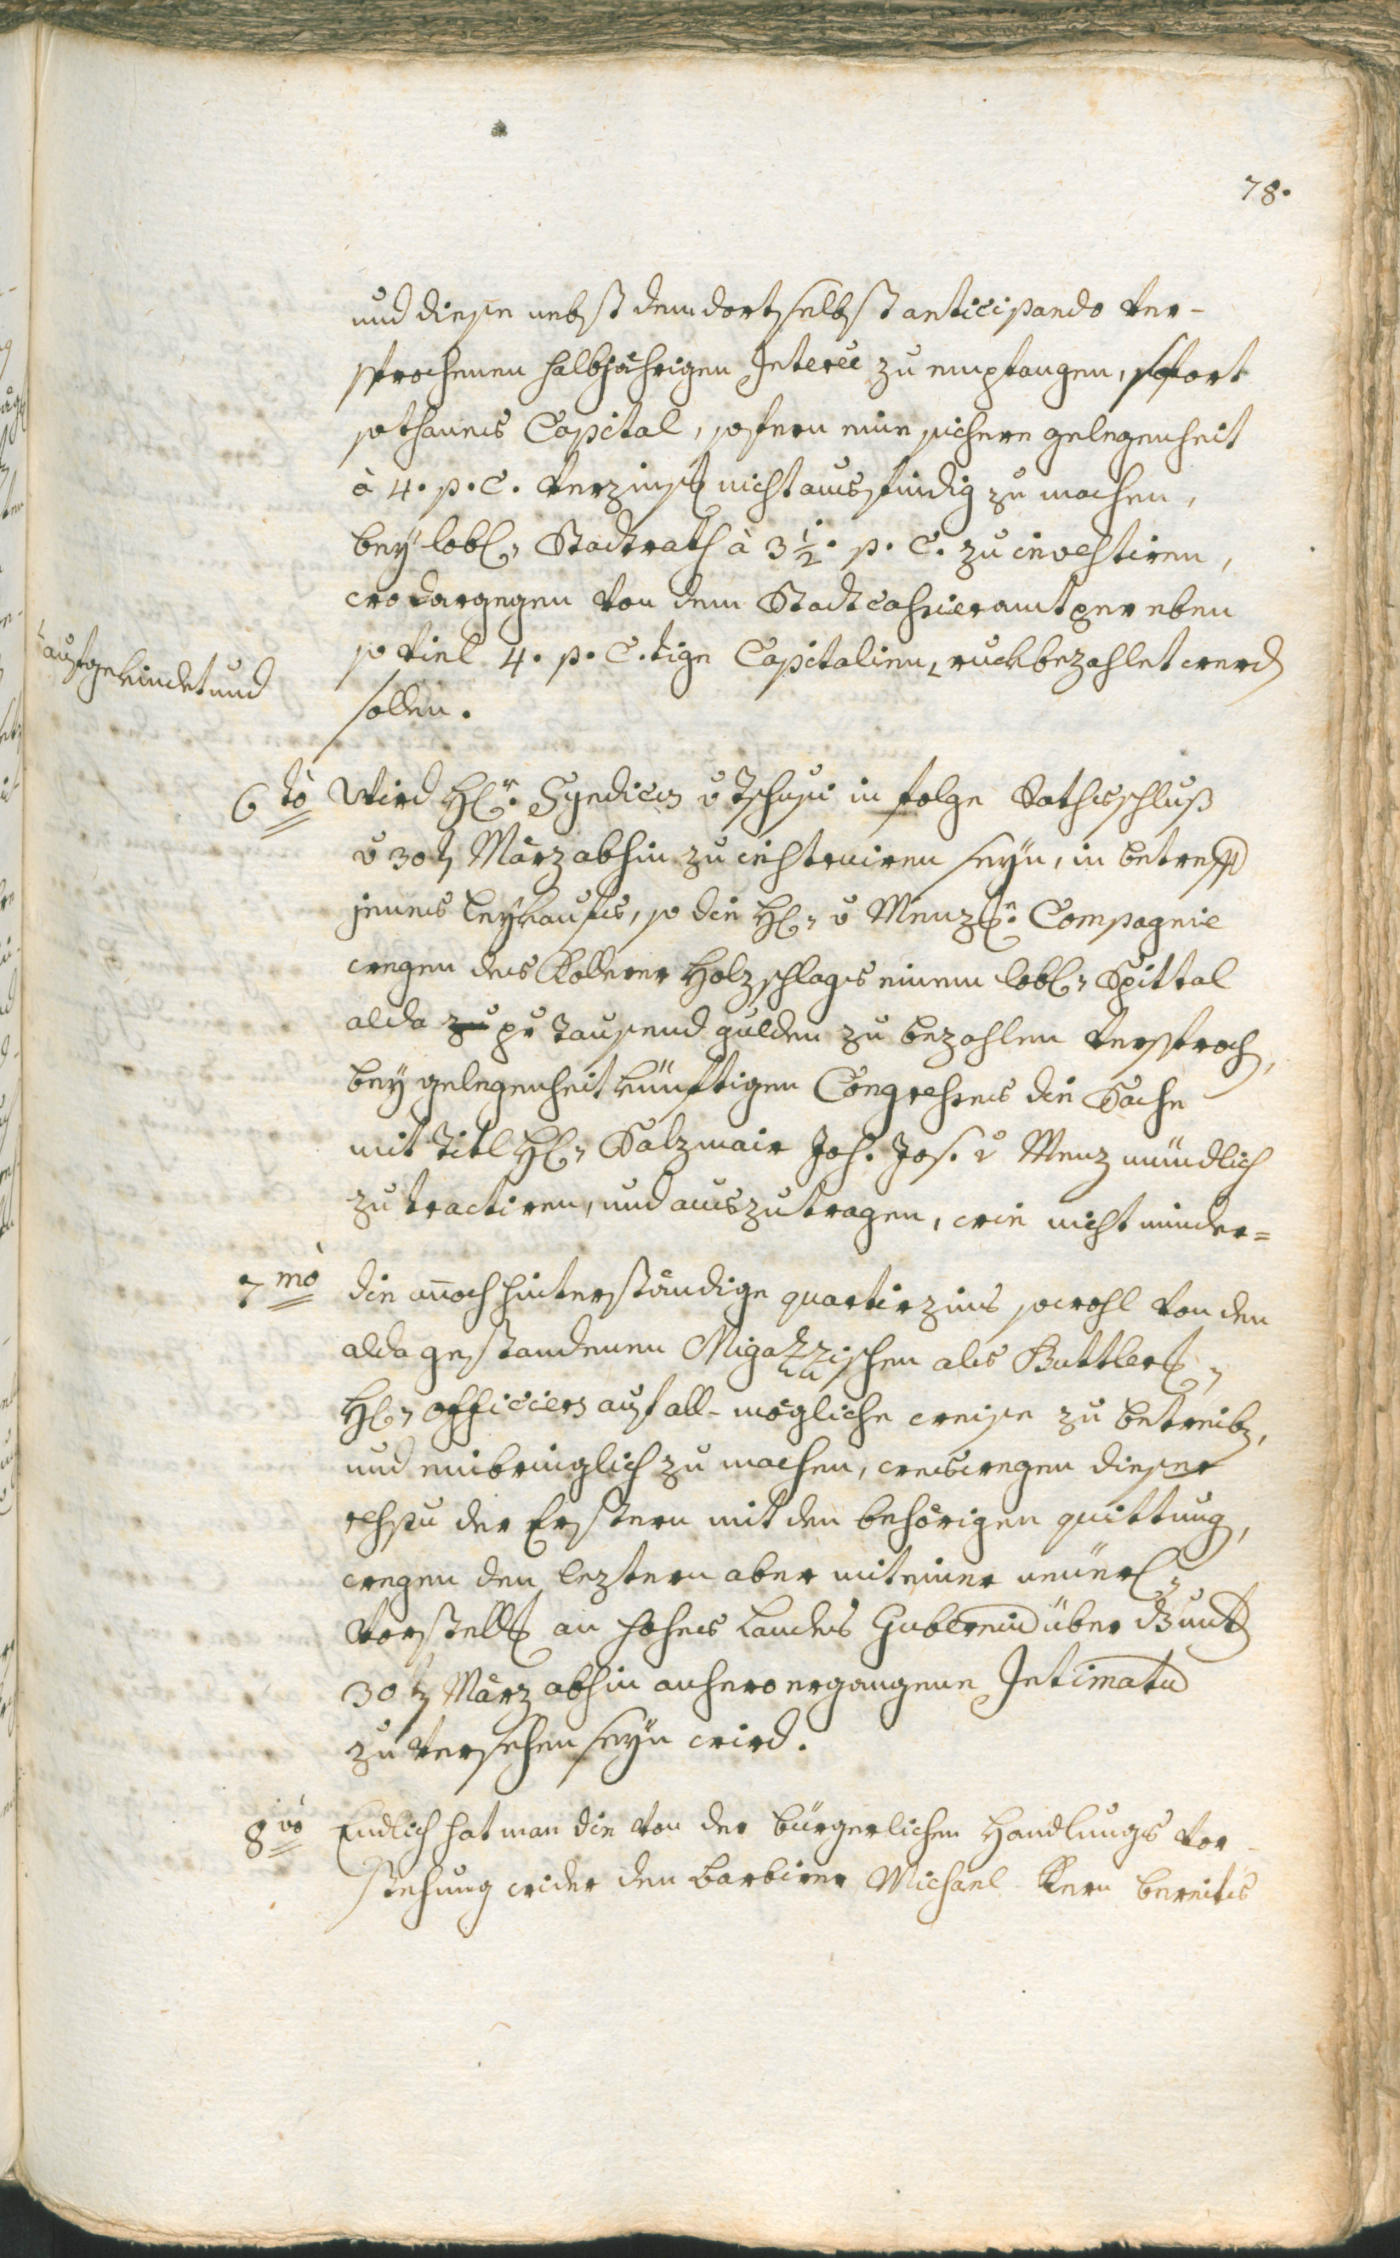 78.
und diese nebst dem dortselbst anticipando ver-
sprochenen halbjährigen Interee zu empfangen, sofort
sothanes Capital, sofern eine sichere gelegenheit
à 4. p. C. verzinsl nicht ausfindig zu machen,
bey löbl. Stadtrath à 3 1/2. p. C. zu investiren,
wo dargegen von dem Stadtcassieramt per eben
so viel 4. p. C.tige Capitalien, ruckbezahlet werden
aufgekindet und
sollen.
6to Wird H. Syndicus v Tschusi in folge Rathsschluß
v 30t März abhin zu instruiren seyn, in betreff
jenes leykaufes, so die H. v Menz. Compagnie
wegen des Kollerer Holzschlags einem löbl. Spittal
alda zu pr Tausend gulden zu bezahlen versproch,
bey gelegenheit künftigen Congresses die Sache
mit Titl H. Salzmair Joh. Jos. v Menz mündlich
zu tractiren, und auszutragen, wie nicht minder=
7mo die annoch hinterständige quartirzins sowohl von den
alda gestandenen Migazzischen als Buttler,
H. officiers auf all- mögliche weise zu betreiben,
und einbringlich zu machen, weswegen dieser
respu der Erstern mit den behörigen quittung,
wegen den leztern aber mit einer neuerl.
Vorstellg an hohes Landes Gubernium über unt
30t März abhin anhero ergangene Intimatum
zu versehen seyn wird.
8vo Endlich hat man die von der bürgerlichen Handlungs Vor-
stehung wider den barbirer Michael Kern bereits